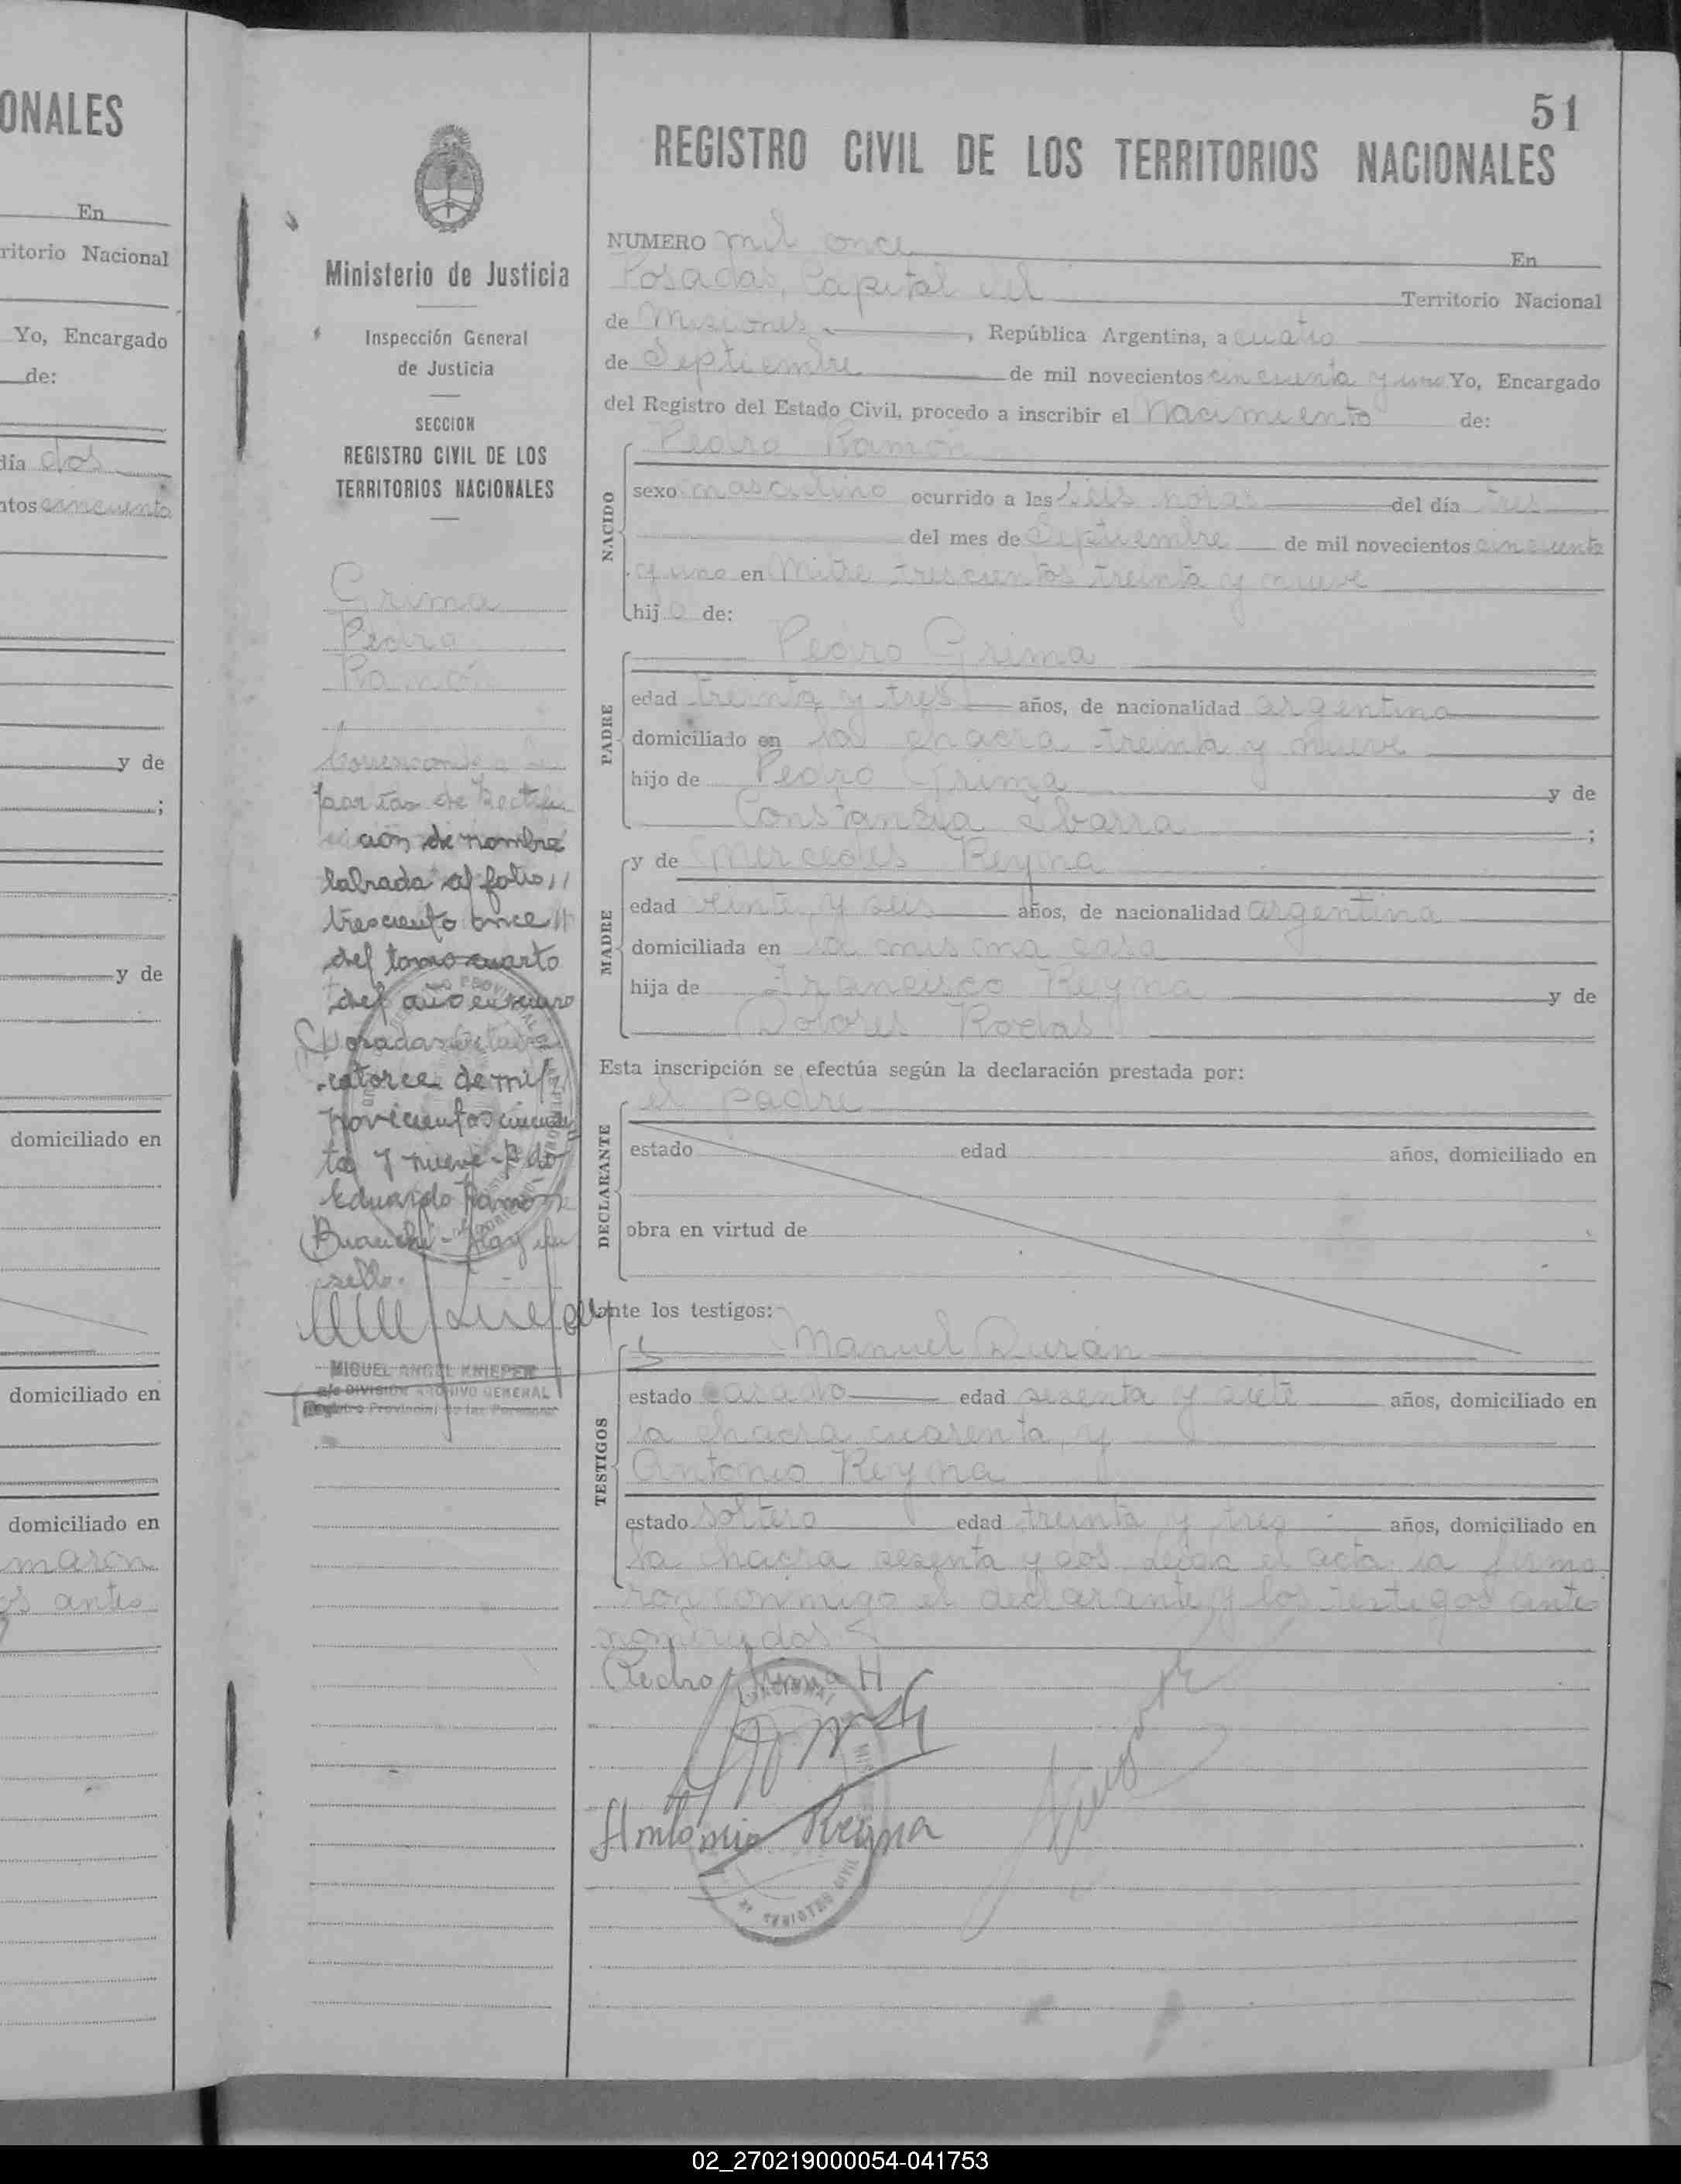 ONALES
En
ritorio Nacional
Yo, Encargado
de:
día dos
ntos cincuenta
y de
;
y de
domiciliado en
domiciliado en
domiciliado en
maron
os ante
Ministerio de Justicia
Inspección General
de Justicia
SECCION
REGISTRO CIVIL DE LOS
TERRITORIOS NACIONALES
Grima
Pedro
Ramón
ción de nombre
labrada al folio
trescientos once
del tomo cuarto
del año en curso
Posadas
catorce de mil
novecientos cincuen
ta y nueve
Eduardo Ramon
Hay un
sello.
MIGUEL ANGEL KNIEPER
a/c DIVISION ARCHIVO GENERAL
Registro Provincial de las Personas
51
REGISTRO CIVIL DE LOS TERRITORIOS NACIONALES
NUMERO mil once En
Posadas, Capital del Territorio Nacional
de Misiones, República Argentina, a cuatro
de Septiembre de mil novecientos cincuenta y uno Yo, Encargado
del Registro del Estado Civil, procedo a inscribir el Nacimiento de:
NACIDO
Pedro Ramón
sexo masculino ocurrido a las seis horas del día tres
del mes de Septiembre de mil novecientos cincuenta
y uno en Mitre trescientos treinta y nueve
hijo de:
PADRE
Pedro Grima
edad treinta y tres años, de nacionalidad argentina
domiciliado en la chacra treinta y nueve
hijo de Pedro Grima y de
Constancia Ibarra ;
MADRE
y de Mercedes Reyna
edad veinte y seis años, de nacionalidad argentina
domiciliada en la misma casa
hija de Francisco Reyna y de
Dolores Rodas
Esta inscripción se efectúa según la declaración prestada por:
DECLARANTE
el padre
estado edad años, domiciliado en
obra en virtud de
ante los testigos:
TESTIGOS
Manuel Durán
estado casado edad sesenta y siete años, domiciliado en
la chacra cuarenta y
Antonio Reyna
estado soltero edad treinta y tres años, domiciliado en
la chacra sesenta y dos. Leída el acta la firma
ron conmigo el declarante y los testigos ante
nombrados
Pedro Grima H
Antonio Reyna
02_270219000054-041753